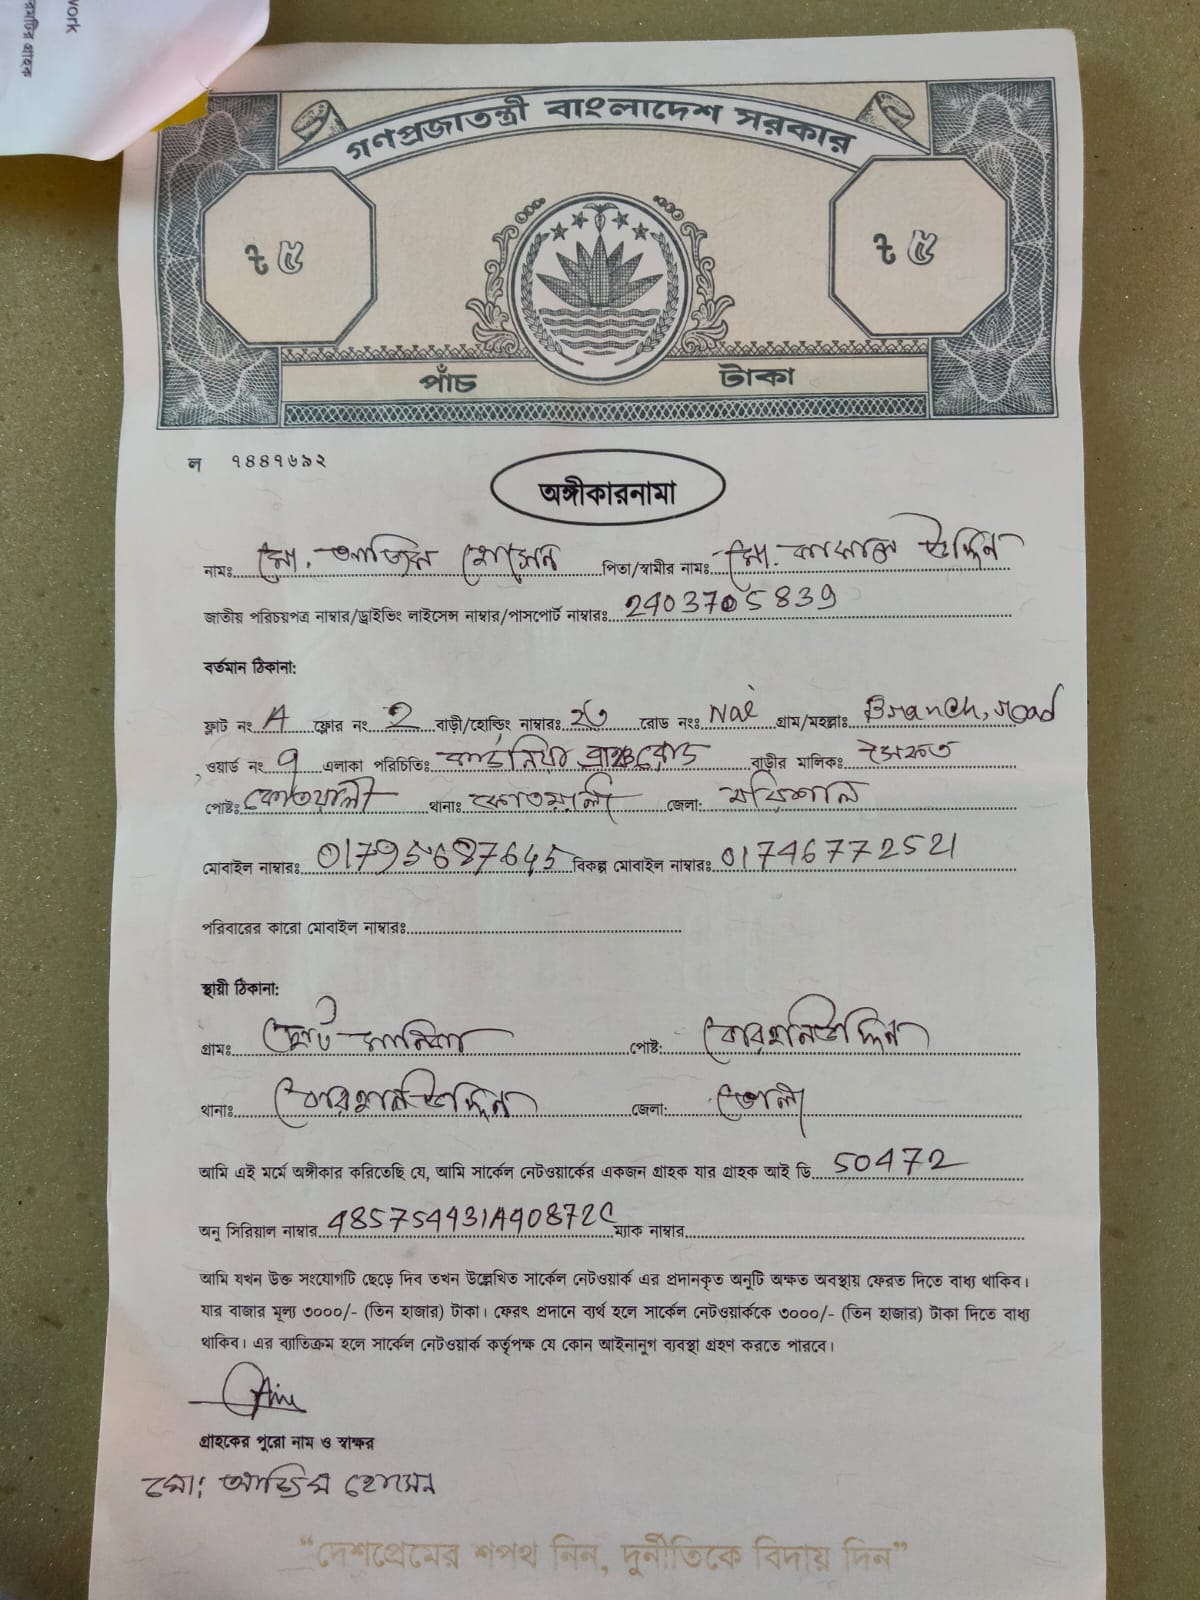 work
গণপ্রজাতন্ত্রী বাংলাদেশ সরকার
৳ ৫ ৳ ৫
পাঁচ টাকা
ল ৭৪৪৭৬৯২
অঙ্গীকারনামা
নামঃ মো. আজিম হোসেন পিতা/স্বামীর নামঃ মো. কামাল উদ্দিন
জাতীয় পরিচয়পত্র নাম্বার/ড্রাইভিং লাইসেন্স নাম্বার/পাসপোর্ট নাম্বারঃ 2403705839
বর্তমান ঠিকানা:
ফ্লাট নং A ফ্লোর নং 2 বাড়ী/হোল্ডিং নাম্বারঃ রোড নংঃ গ্রাম/মহল্লাঃ Branch, road
ওয়ার্ড নং এলাকা পরিচিতিঃ ব্রাঞ্চ রোড বাড়ীর মালিকঃ
পোষ্টঃ কোতয়ালী থানাঃ কোতয়ালী জেলা: বরিশাল
মোবাইল নাম্বারঃ 01795687645 বিকল্প মোবাইল নাম্বারঃ 01746772521
পরিবারের কারো মোবাইল নাম্বারঃ
স্থায়ী ঠিকানা:
গ্রামঃ ছোট মানিকা পোষ্ট: বোরহানউদ্দিন
থানাঃ বোরহানউদ্দিন জেলা: ভোলা
আমি এই মর্মে অঙ্গীকার করিতেছি যে, আমি সার্কেল নেটওয়ার্কের একজন গ্রাহক যার গ্রাহক আই ডি 50472
অনু সিরিয়াল নাম্বার 485754431A40872C ম্যাক নাম্বার
আমি যখন উক্ত সংযোগটি ছেড়ে দিব তখন উল্লেখিত সার্কেল নেটওয়ার্ক এর প্রদানকৃত অনুটি অক্ষত অবস্থায় ফেরত দিতে বাধ্য থাকিব।
যার বাজার মূল্য ৩০০০/- (তিন হাজার) টাকা। ফেরৎ প্রদানে ব্যর্থ হলে সার্কেল নেটওয়ার্ককে ৩০০০/- (তিন হাজার) টাকা দিতে বাধ্য
থাকিব। এর ব্যাতিক্রম হলে সার্কেল নেটওয়ার্ক কর্তৃপক্ষ যে কোন আইনানুগ ব্যবস্থা গ্রহণ করতে পারবে।
গ্রাহকের পুরো নাম ও স্বাক্ষর
মো: আজিম হোসেন
“দেশপ্রেমের শপথ নিন, দুর্নীতিকে বিদায় দিন”